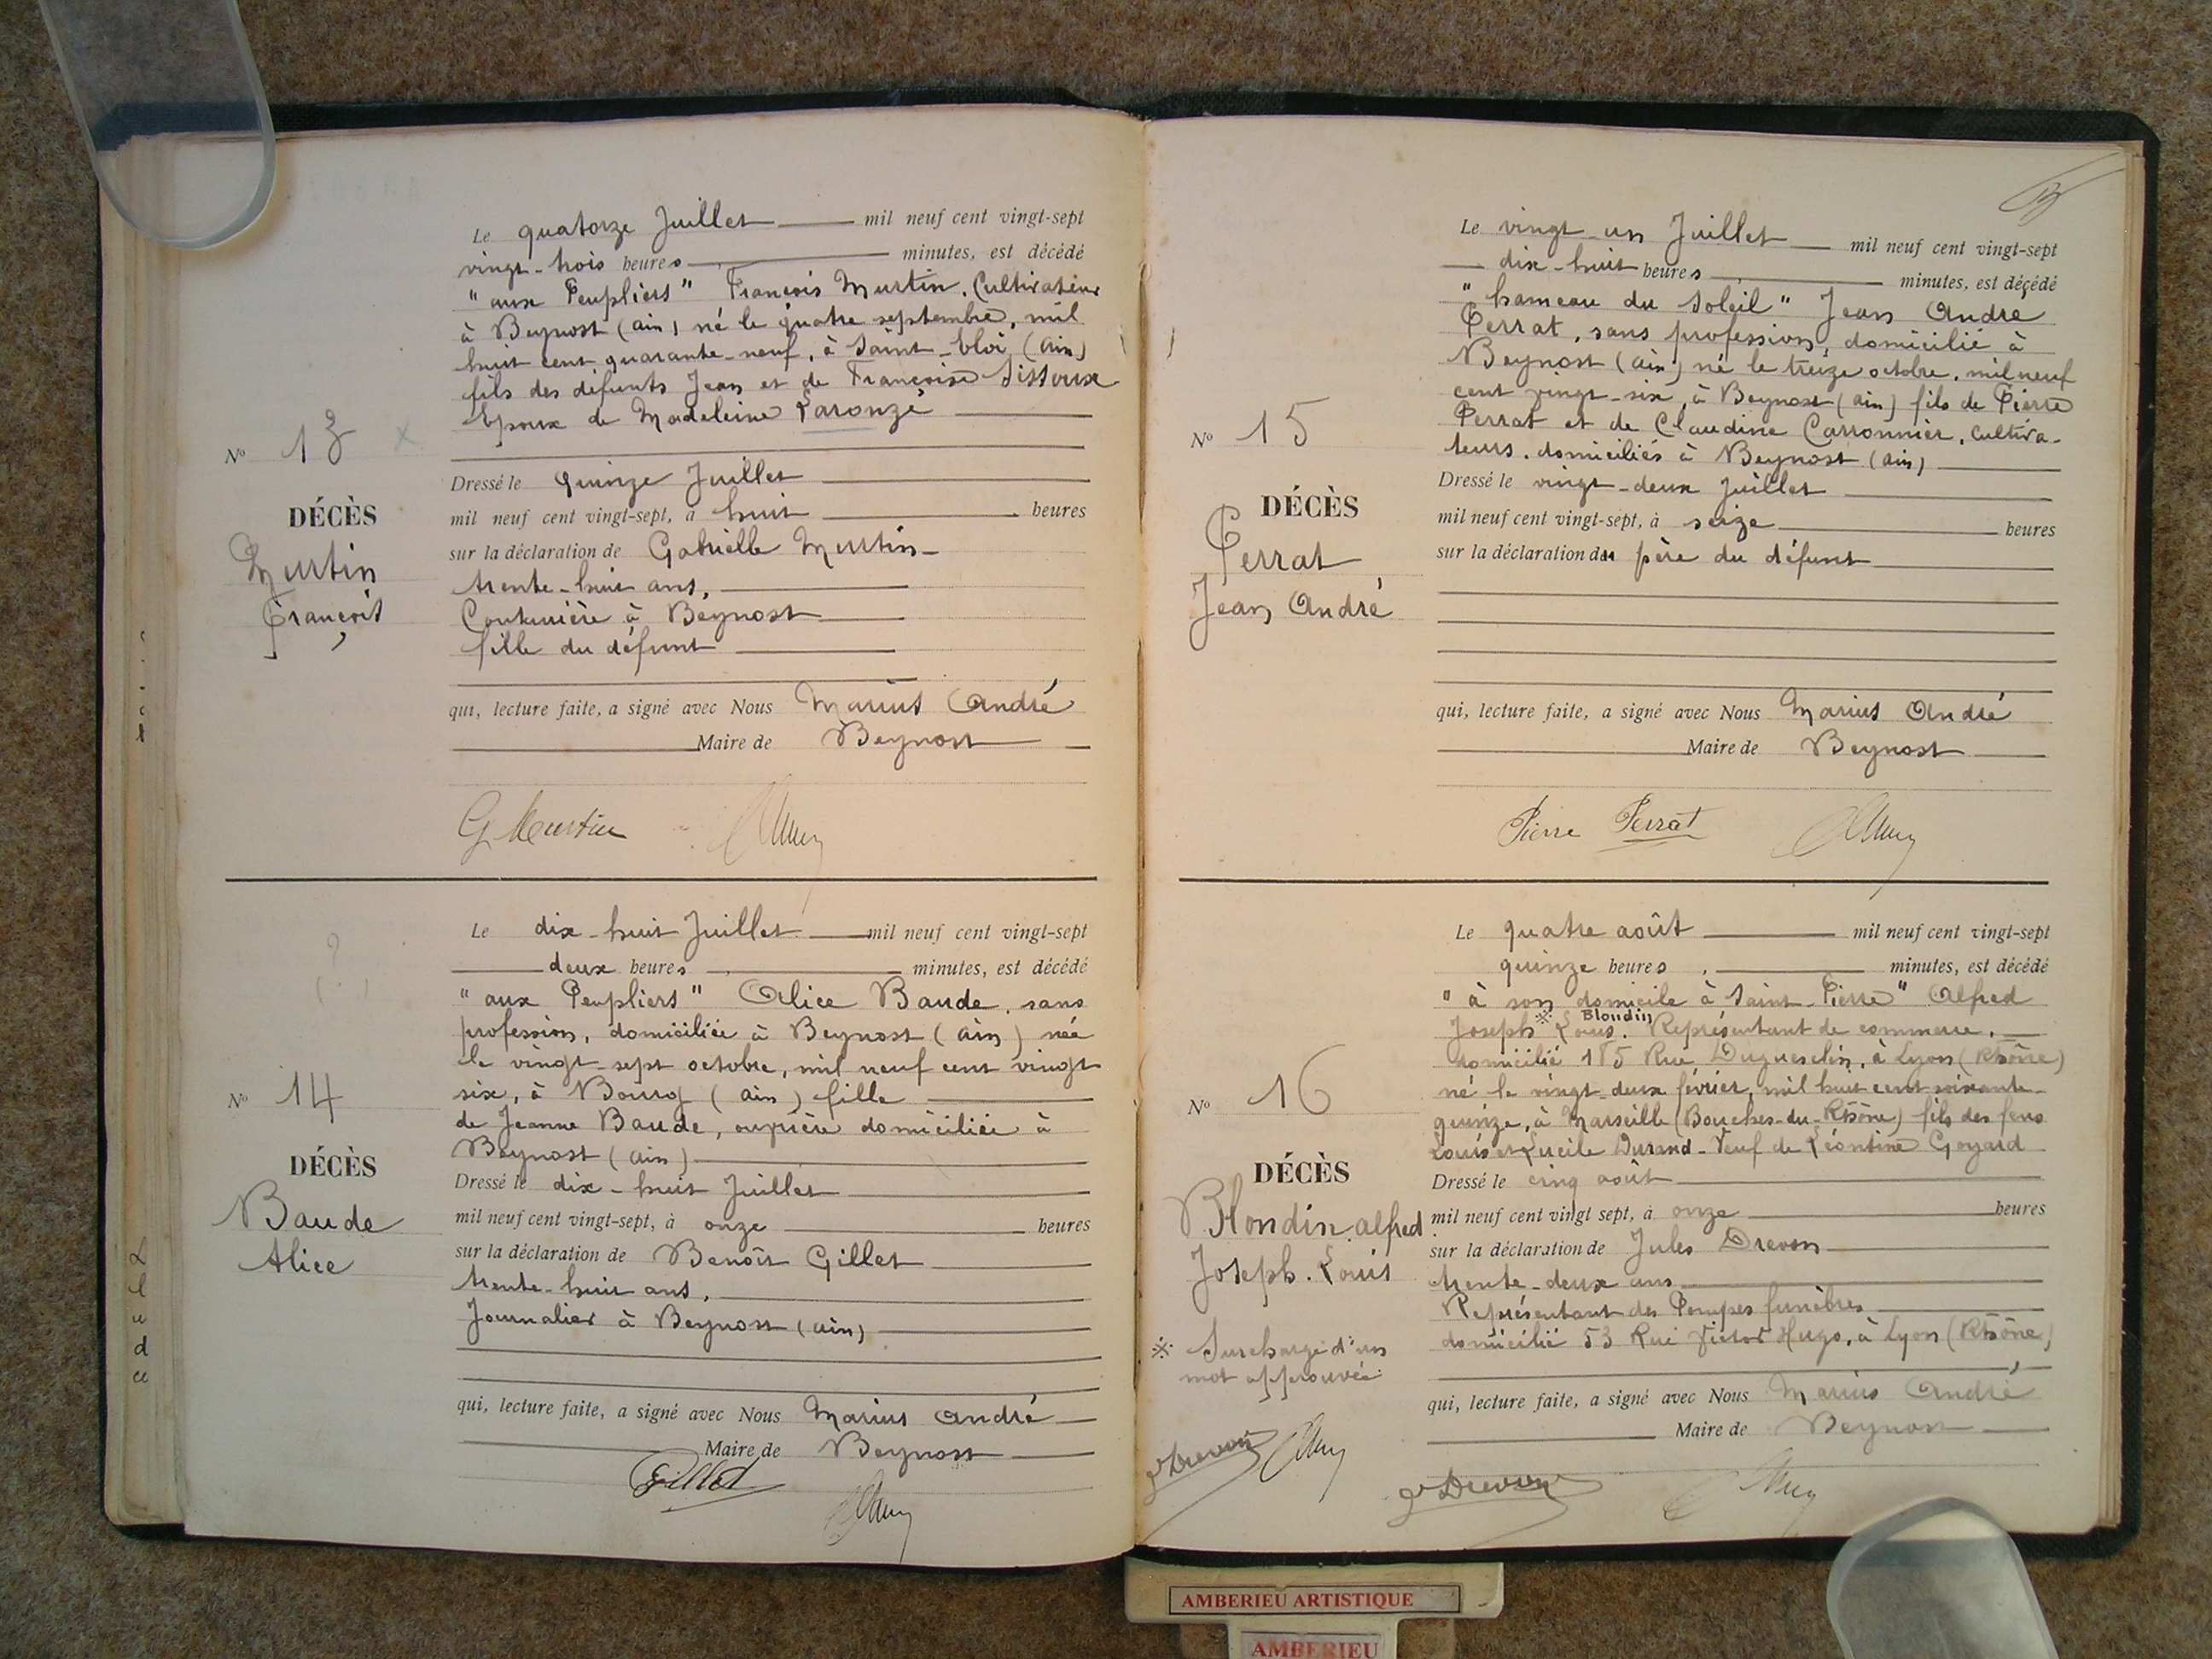 Le quatorze Juillet mil neuf cent vingt-sept
vingt-trois heures minutes, est décédé
"aux Peupliers" François Murtin, Cultivateur
à Beynost (ain) né le quatre septembre, mil
huit cent quarante-neuf, à Saint-Eloi (Ain)
fils des défunts Jean et de Françoise
Epoux de Madeleine Laronzé
Nº 13
Dressé le quinze Juillet
DÉCÈS
mil neuf cent vingt-sept, à huit heures
Murtin
François
sur la déclaration de Gabrielle Murtin
trente-huit ans,
Couturière à Beynost
fille du défunt
qui, lecture faite, a signé avec Nous Marius André
Maire de Beynost
G Murtin
Le dix-huit Juillet mil neuf cent vingt-sept
deux heures minutes, est décédé
"aux Peupliers" Alice Baude, sans
profession, domiciliée à Beynost (ain) née
le vingt-sept octobre, mil neuf cent vingt
six, à Bourg (ain) fille
de Jeanne Baude, ouvrière domiciliée à
Beynost (ain)
Nº 14
DÉCÈS
Baude
Alice
Dressé le dix-huit Juillet
mil neuf cent vingt-sept, à onze heures
sur la déclaration de Benoît Gillet
trente-huit ans,
Journalier à Beynost (ain)
qui, lecture faite, a signé avec Nous Marius André
Maire de Beynost
Gillet
Le vingt-un Juillet mil neuf cent vingt-sept
dix-huit heures minutes, est décédé
"hameau du Soleil" Jean André
Perrat, sans profession, domicilié à
Beynost (ain) né le treize octobre, mil neuf
cent vingt-six, à Beynost (ain) fils de Pierre
Perrat et de Claudine Carronnier, cultiva-
teurs, domiciliés à Beynost (ain)
Nº 15
DÉCÈS
Perrat
Jean André
Dressé le vingt-deux Juillet
mil neuf cent vingt-sept, à seize heures
sur la déclaration du père du défunt
qui, lecture faite, a signé avec Nous Marius André
Maire de Beynost
Pierre Perrat
Le quatre août mil neuf cent vingt-sept
quinze heures minutes, est décédé
"à son domicile à Saint-Pierre" Alfred
Joseph ※ Louis Blondin. Représentant de commerce,
domicilié 185 Rue Duguesclin, à Lyon (Rhône)
né le vingt-deux février, mil huit cent soixante-
quinze, à Marseille (Bouches-du-Rhône) fils des feus
Louis et Lucile Durand - Veuf de Léontine Goyard
Nº 16
DÉCÈS
Blondin alfred
Joseph. Louis
※ Surcharge d'un
mot approuvée
J Drevon
Dressé le cinq août
mil neuf cent vingt sept, à onze heures
sur la déclaration de Jules Drevon
trente-deux ans
Représentant des Pompes funèbres
domicilié 53 Rue Victor Hugo, à Lyon (Rhône)
qui, lecture faite, a signé avec Nous Marius André
Maire de Beynost
J Drevon
AMBERIEU ARTISTIQUE
AMBERIEU